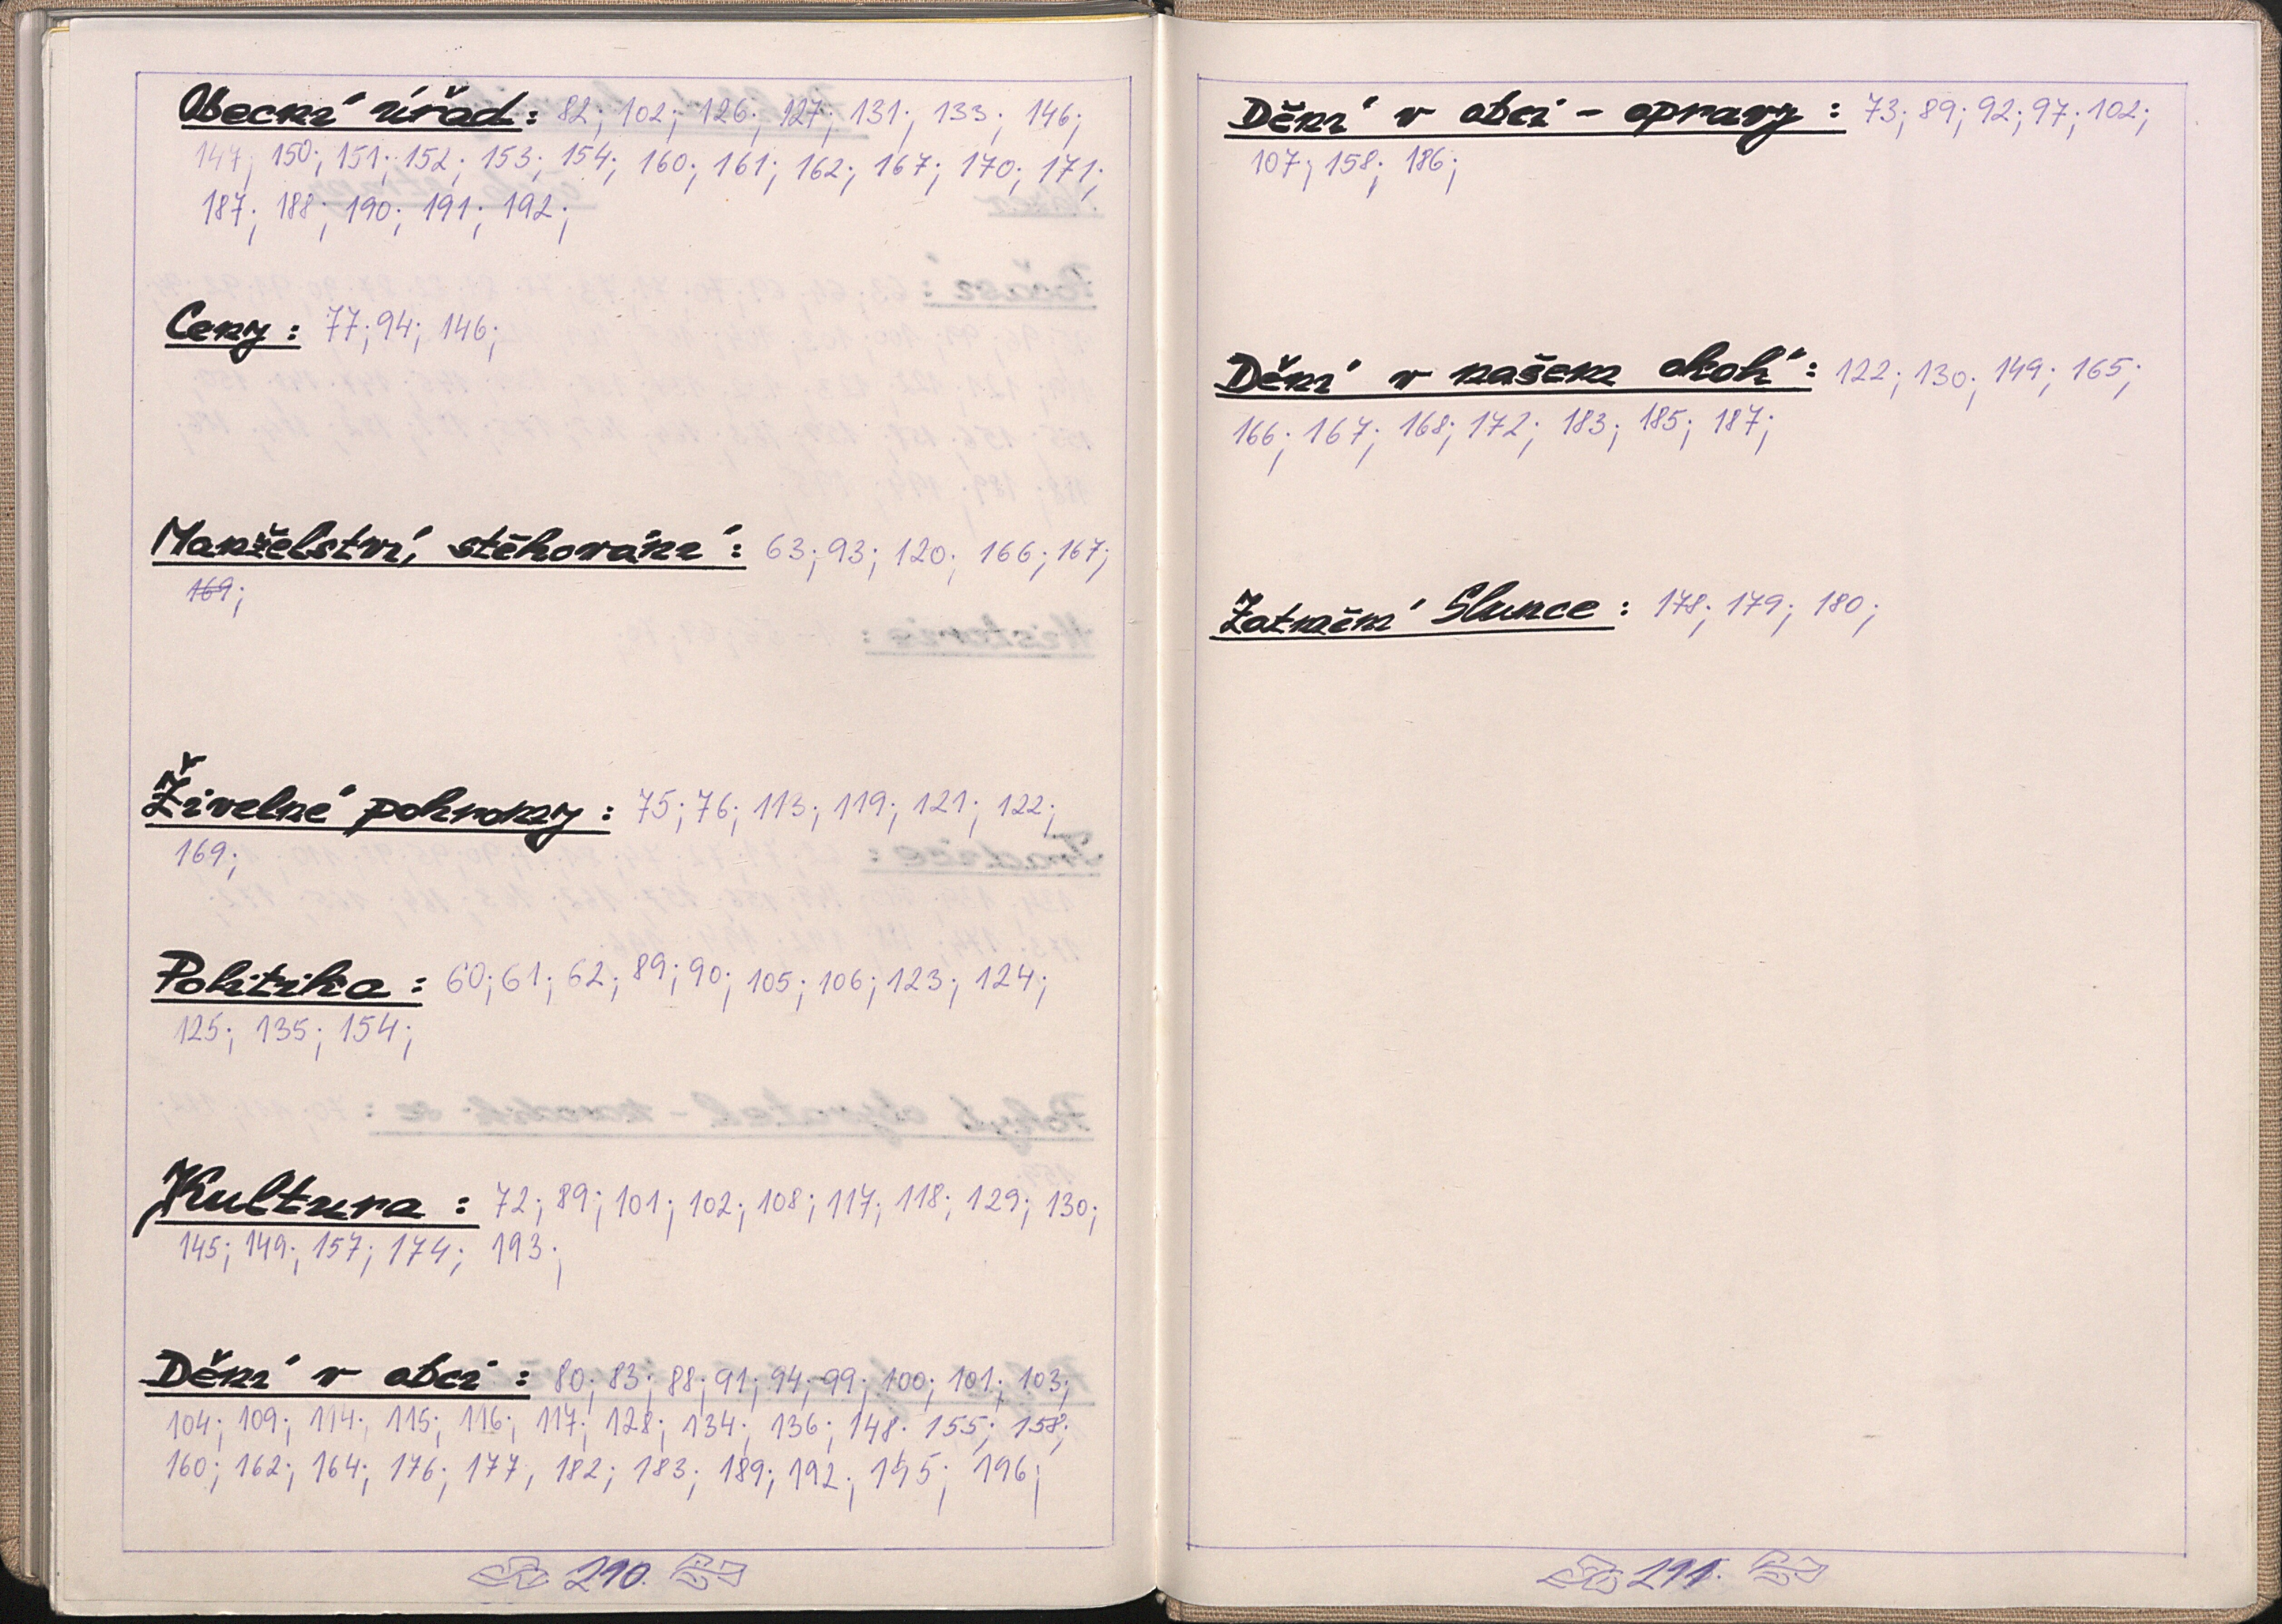 Obecní úřad: 82; 102; 126; 127; 131; 133; 146;
147; 150; 151; 152; 153; 154; 160; 161; 162; 167; 170; 171;
187; 188; 190; 191; 192;
Ceny: 77; 94; 146;
Manželství, stěhování: 63; 93; 120; 166; 167;
169;
Živelné pohromy: 75; 76; 113; 119; 121; 122;
169;
Politika: 60; 61; 62; 89; 90; 105; 106; 123; 124;
125; 135; 154;
Kultura: 72; 89; 101; 102; 108; 117; 118; 129; 130;
145; 149; 157; 174; 193;
Dění v obci: 80; 83; 88; 91; 94; 99; 100; 101; 103;
104; 109; 114; 115; 116; 117; 128; 134; 136; 148. 155; 158;
160; 162; 164; 176; 177; 182; 183; 189; 192; 195; 196;
210.
Dění v obci - opravy: 73; 89; 92; 97; 102;
107; 158; 186;
Dění v našem okolí: 122; 130; 149; 165;
166; 167; 168; 172; 183; 185; 187;
Zatmění Slunce: 178; 179; 180;
211.